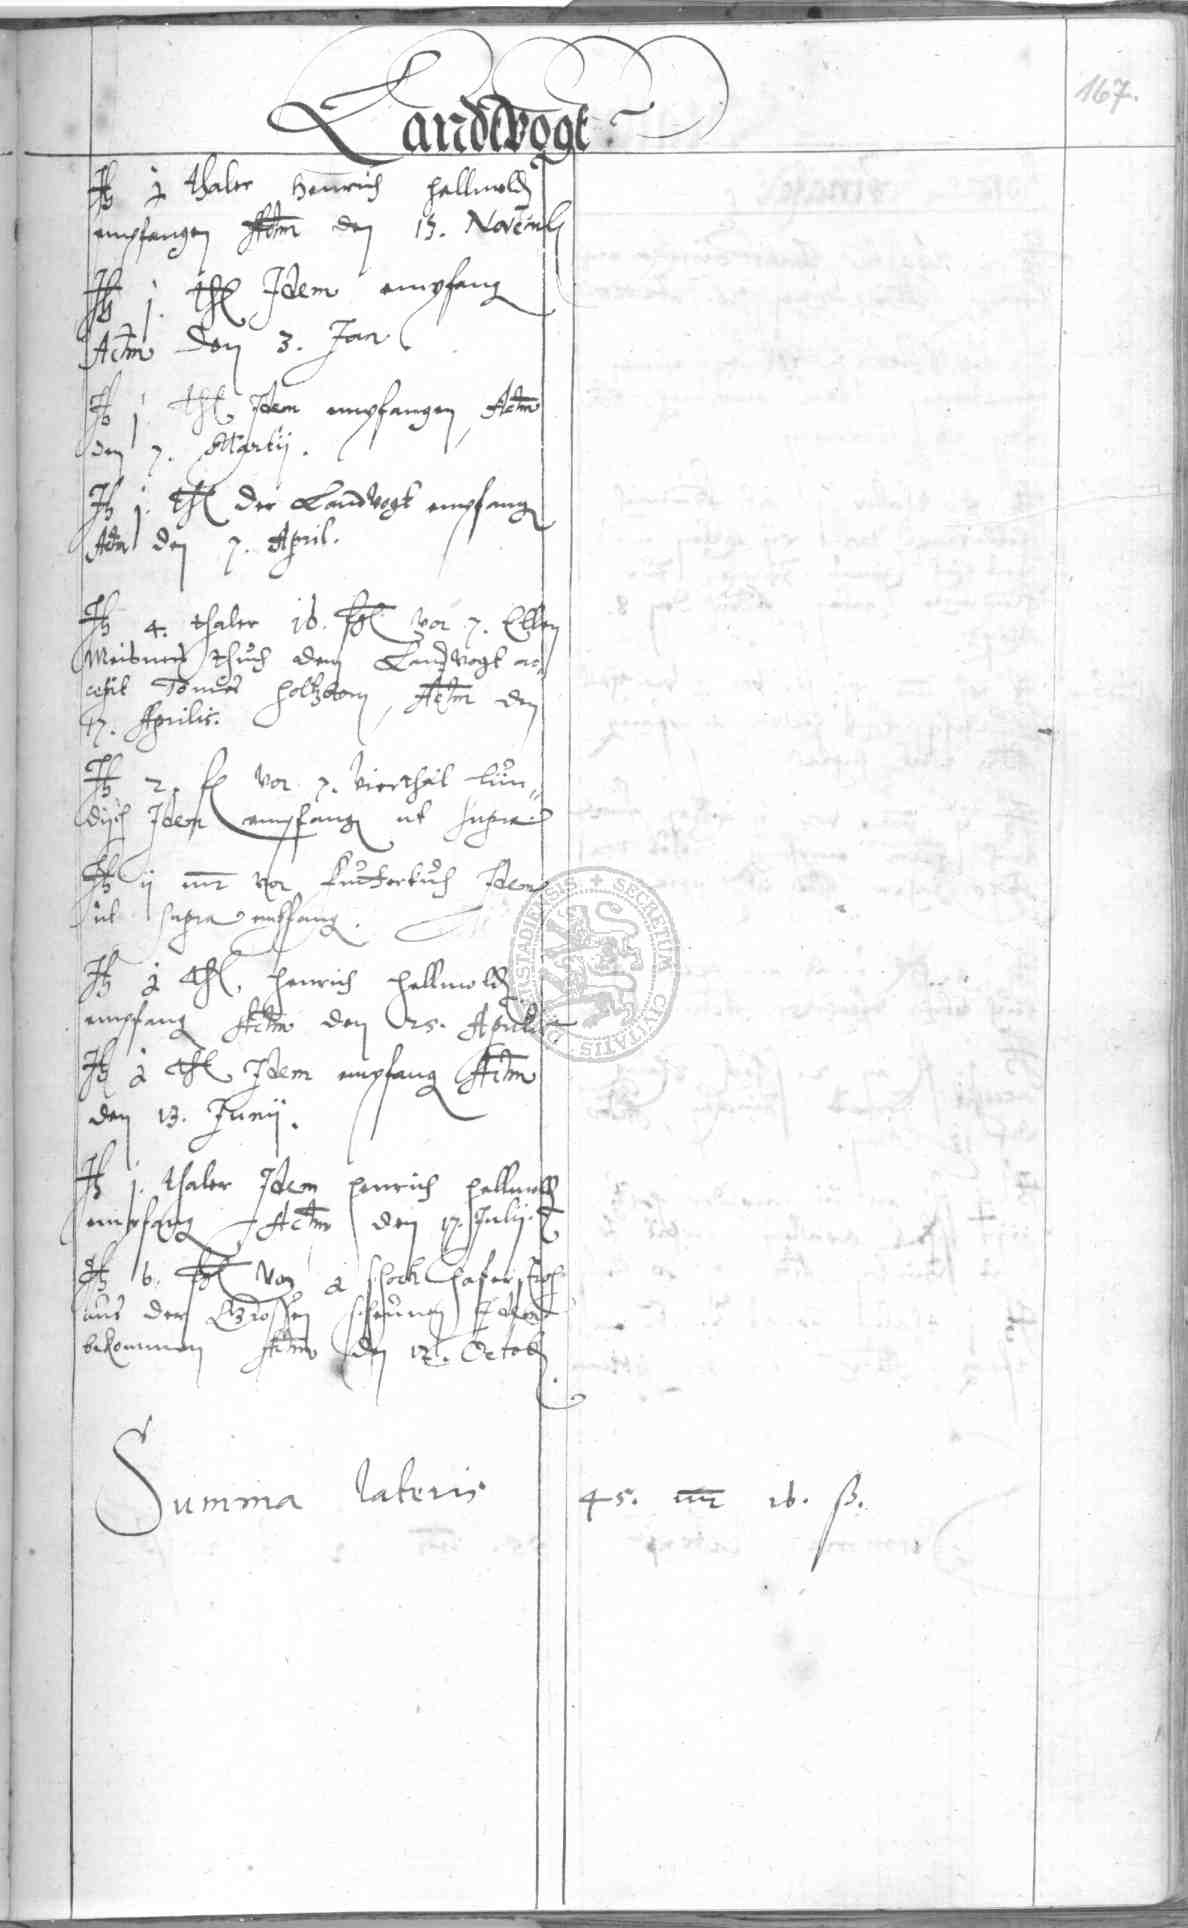 167.
Landtvogt
It 1/2 thaler Henrich Hellmoldt
empfangen Actm den 13. Novemb
It 1. thl Idem empfang
Actm den 3. Jan.
It 1. thl Idem empfangen, Actm
den 7. Martij.
It 1. thl der Landtvogt empfang
Actm den 7. April.
It 4. thaler 16. ßgl vor 7. Ellen
Meisners thuch dem Landtvogt
Tomes Holtzborn, Actm den
17. Aprilis.
It 2. fl vor 7. vierthäl lün-
disch Idem empfang ut supra
It ij mr vor futtertuch Idem
ut supra entfang.
It 1/2 thl, Henrich Hellmoldt
empfang Actm den 25. Aprilis
It 1/2 thl Idem empfang Actm
den 13. Junij.
It 1. thaler Idem Henrich Hellmoldt
empfang Actm den 17. Julij.
It 6. ßgl von 1/2 schock hafer stroh
aus der Grossen scheunen Idem
bekommen Actm den 12. Octob
Summa lateris 45. mr 16. ß.
SECRETUM CIVITATIS DUDERSTADIENSIS